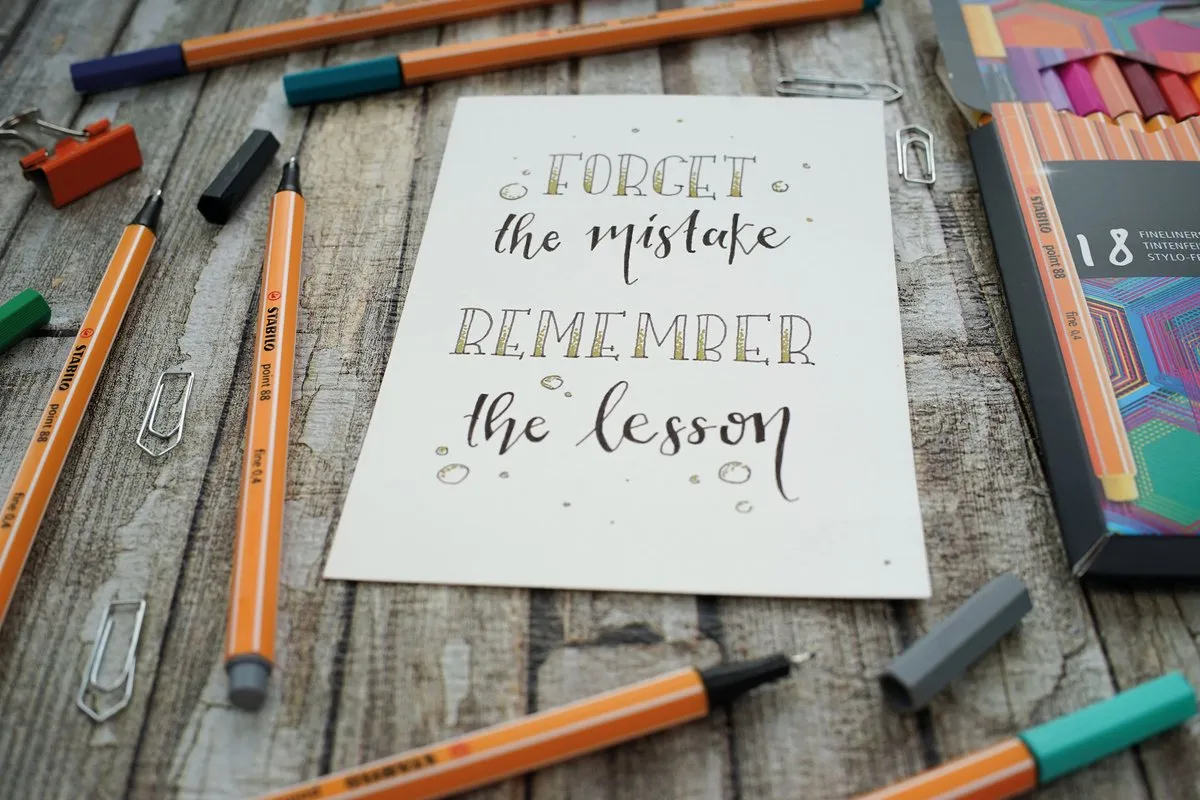 FORGET
the mistake
REMEMBER
the lesson
STABILO point 88 fine 0.4
STABILO point 88 fine 0.4
STABILO
STABILO point 88 fine 0.4
18
FINELINERS